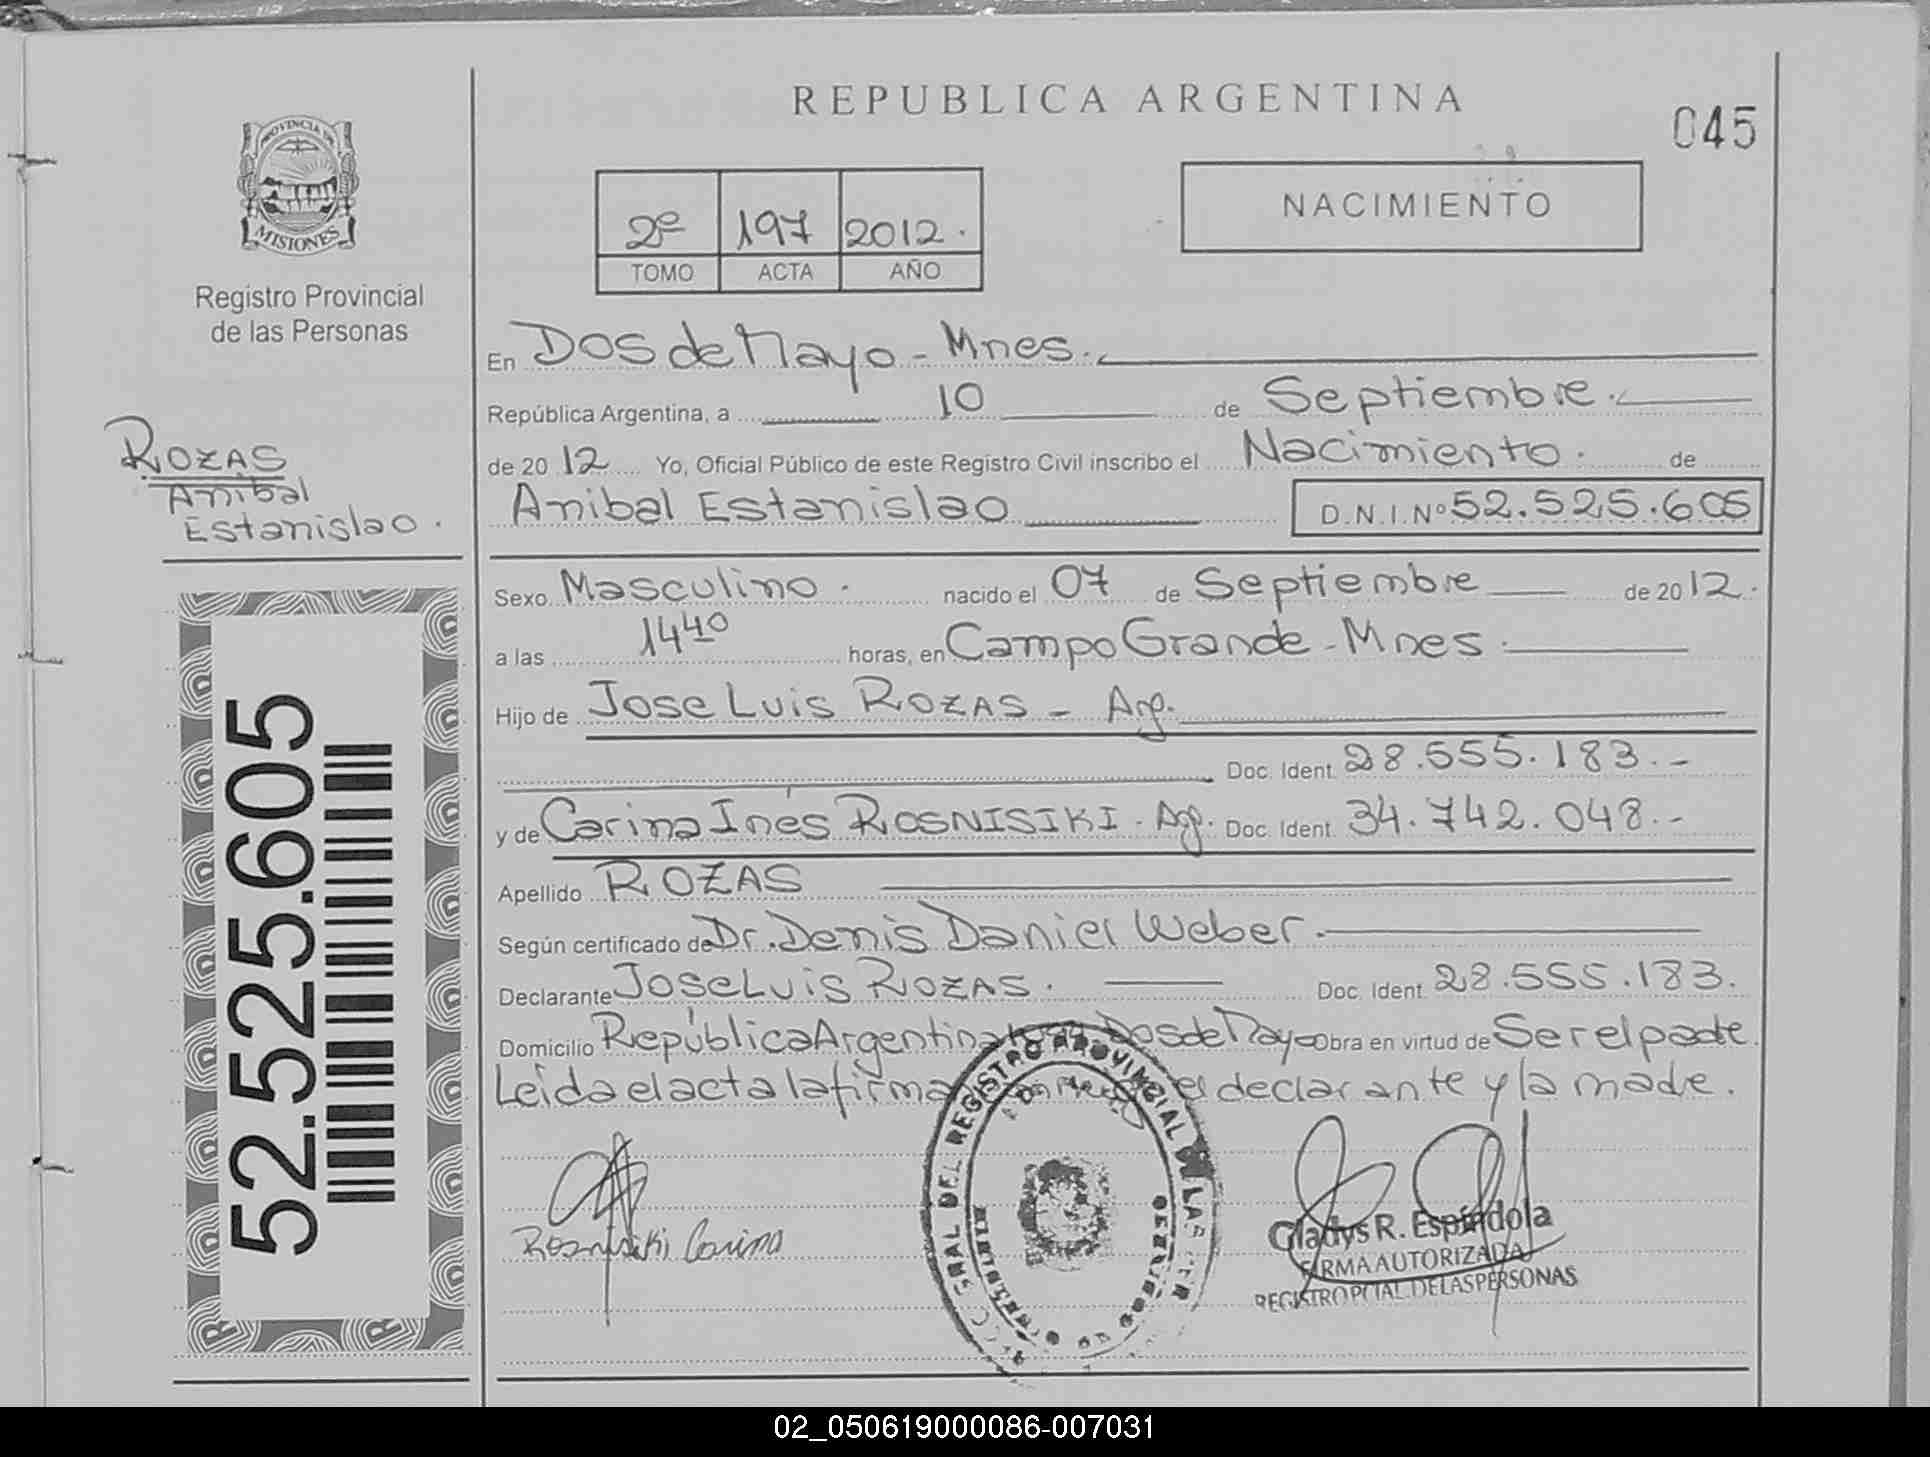 REPUBLICA ARGENTINA
045
PROVINCIA DE
MISIONES
Registro Provincial
de las Personas
2º 197 2012.
TOMO ACTA AÑO
NACIMIENTO
ROZAS
Anibal
Estanislao.
52.525.605
En Dos de Mayo - Mnes.
República Argentina, a 10 de Septiembre.
de 20 12 Yo, Oficial Público de este Registro Civil inscribo el Nacimiento. de
Anibal Estanislao D.N.I.Nº 52.525.605
Sexo Masculino. nacido el 07 de Septiembre de 20 12.
a las 14 40 horas, en Campo Grande - Mnes.
Hijo de Jose Luis ROZAS - Arg.
Doc. Ident. 28.555.183.-
y de Carina Inés ROSNISIKI. Arg. Doc. Ident. 34.742.048.-
Apellido ROZAS
Según certificado de Dr. Denis Daniel Weber.
Declarante Jose Luis ROZAS. Doc. Ident. 28.555.183.
Domicilio República Argentina Dos de Mayo Obra en virtud de Ser el padre.
Leida el acta la firma el declarante y la madre.
REGISTRO PROVINCIAL DE LAS
Rosnisiki Carina
Gladys R. Espíndola
FIRMA AUTORIZADA
REGISTRO PCIAL. DE LAS PERSONAS
02_050619000086-007031